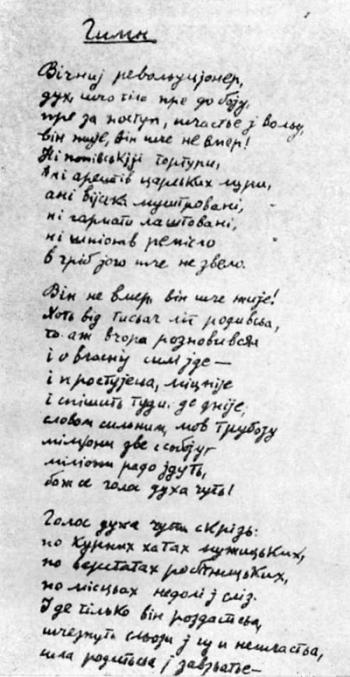 Гимн.
Вічниј революцијонер,
дух, шчо тіло пре до боју,
пре за поступ, шчастье ј вольу,
він жије, він шче не вмер!
Ні попівськіјі тортури,
Ані арештів царських мури,
ані війска муштровані,
ні гармати лаштовані,
ні шпіонів ремесло
в гріб јого шче не звело.
Він не вмер, він шче жије!
Хоть від тисьач літ родивсьа,
то аж вчора розповивсьа
і о власніј силі јде —
і простујеција, міцније
і спішить туди, де дније;
словом сильним, мов трубоју
міліјони зве з собоју,
міліјони радо јдуть,
бо се голос духа чуть!
Голос духа чути скрізь:
по курних хатах мужицьких,
по верстатах робітницьких,
по місцьах недолі ј сліз.
І де тілько він роздастьсьа,
шчезнуть сльози, сум, нешчастьа,
сила родитьсьа ј завзьатьє —